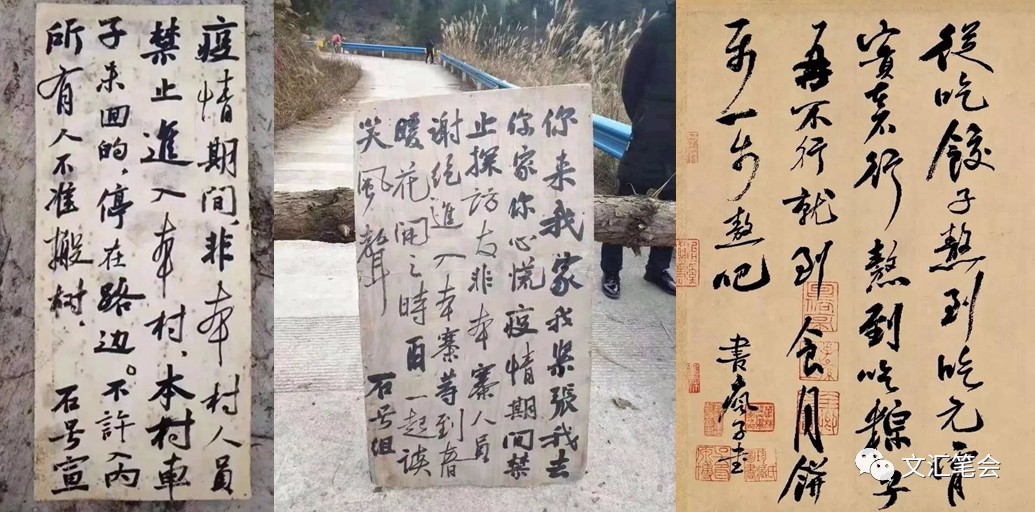 疫情期间,非本村人员
禁止進入本村,本村車
子未回的,停在路边。不許入内
所有人不准搬树,石号宣
你来我家我紧張我去
你家你心慌疫情期间禁
止探訪友非本寨人員
谢绝進入本寨等到春
暖花開之時再一起谈
笑風聲 石号组
從吃餃子熬到吃元宵
實在不行熬到吃粽子
再不行就到食月餅
一步一步熬吧 書瘋子书
文汇笔会